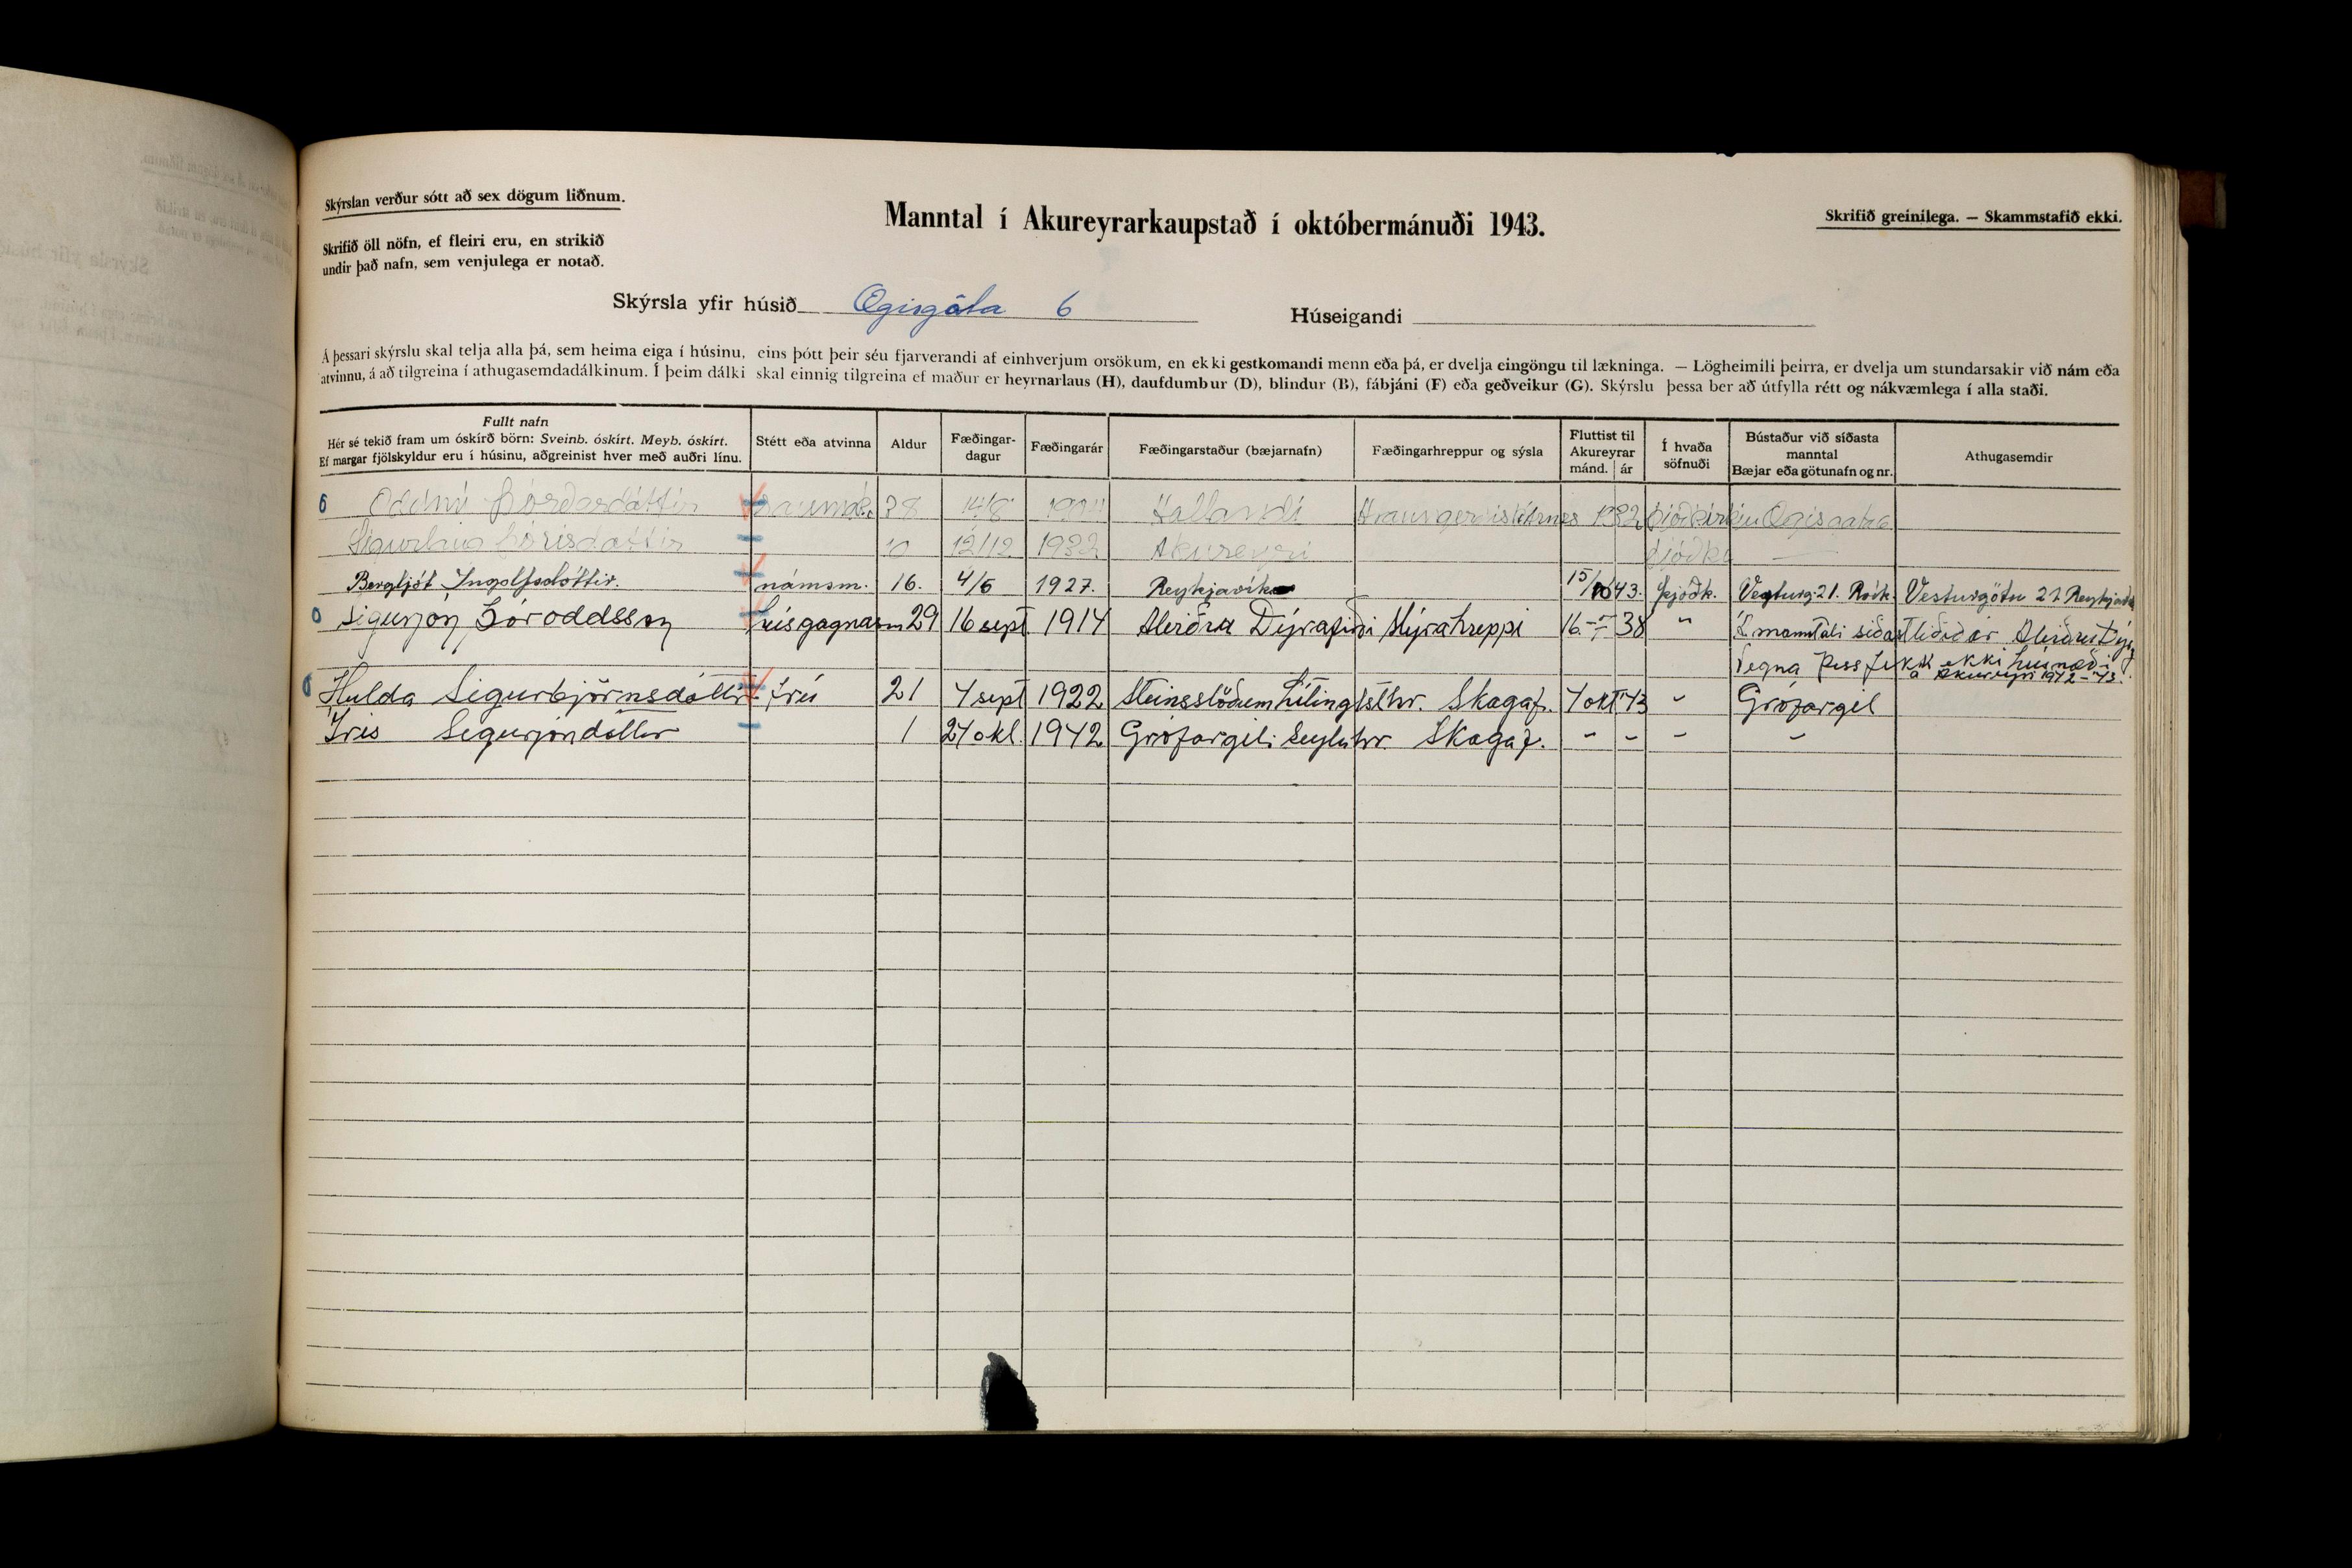 Skýrslan verður sótt að sex dögum liðnum.
Skrifið öll nöfn, ef fleiri eru, en strikið
undir það nafn, sem venjulega er notað.
Manntal í Akureyrarkaupstað í októbermánuði 1943.
Skrifið greinilega. — Skammstafið ekki.
Skýrsla yfir húsið Ægisgáta 6 Húseigandi
Á þessari skýrslu skal telja alla þá, sem heima eiga í húsinu, eins þótt þeir séu fjarverandi af einhverjum orsökum, en ekki gestkomandi menn eða þá, er dvelja eingöngu til lækninga. — Lögheimili þeirra, er dvelja um stundarsakir við nám eða
atvinnu, á að tilgreina í athugasemdadálkinum. Í þeim dálki skal einnig tilgreina ef maður er heyrnarlaus (H), daufdumbur (D), blindur (B), fábjáni (F) eða geðveikur (G). Skýrslu þessa ber að útfylla rétt og nákvæmlega í alla staði.
Fullt nafn
Hér sé tekið fram um óskírð börn: Sveinb. óskírt. Meyb. óskírt.
Ef margar fjölskyldur eru í húsinu, aðgreinist hver með auðri línu.
Stétt eða atvinna
Aldur
Fæðingar-
dagur
Fæðingarár
Fæðingarstaður (bæjarnafn)
Fæðingarhreppur og sýsla
Fluttist til
Akureyrar
mánd. ár
Í hvaða
söfnuði
Bústaður við síðasta
manntal
Bæjar eða götunafn og nr.
Athugasemdir
6 Oddný Þórðardóttir 38 14/8 Hallandi 1932 Þjóðkirkju Ægisgata 6
Sigurlaug Þórisdóttir 10 12/12 1932 Akureyri Þjóðk —
Bergljót Ingolfsdóttir. námsm. 16. 4/5 1927. Reykjavík 15/10 43. Þjóðk. Vesturg. 21. Rvík. Vesturgötu 21 Reykjavík
Sigurjón Þóroddsson húsgagnasm 29 16 sept 1914 Alviðru Dýrafirði Mýrahreppi 16. - 38 " Í manntali síðastliðið ár Alviðru Dýr
Vegna þess fekk ekki húsnæði
á Akureyri 1942-43.
Hulda Sigurbjörnsdóttir frú 21 4 sept 1922 Steinsstöðum Lýtingsst.hr. Skagaf. 4 okt 43 - Grófargil
Íris Sigurjóndóttir 1 24 okt. 1942 Grófargili Seyluhr. Skagaf. - - - -